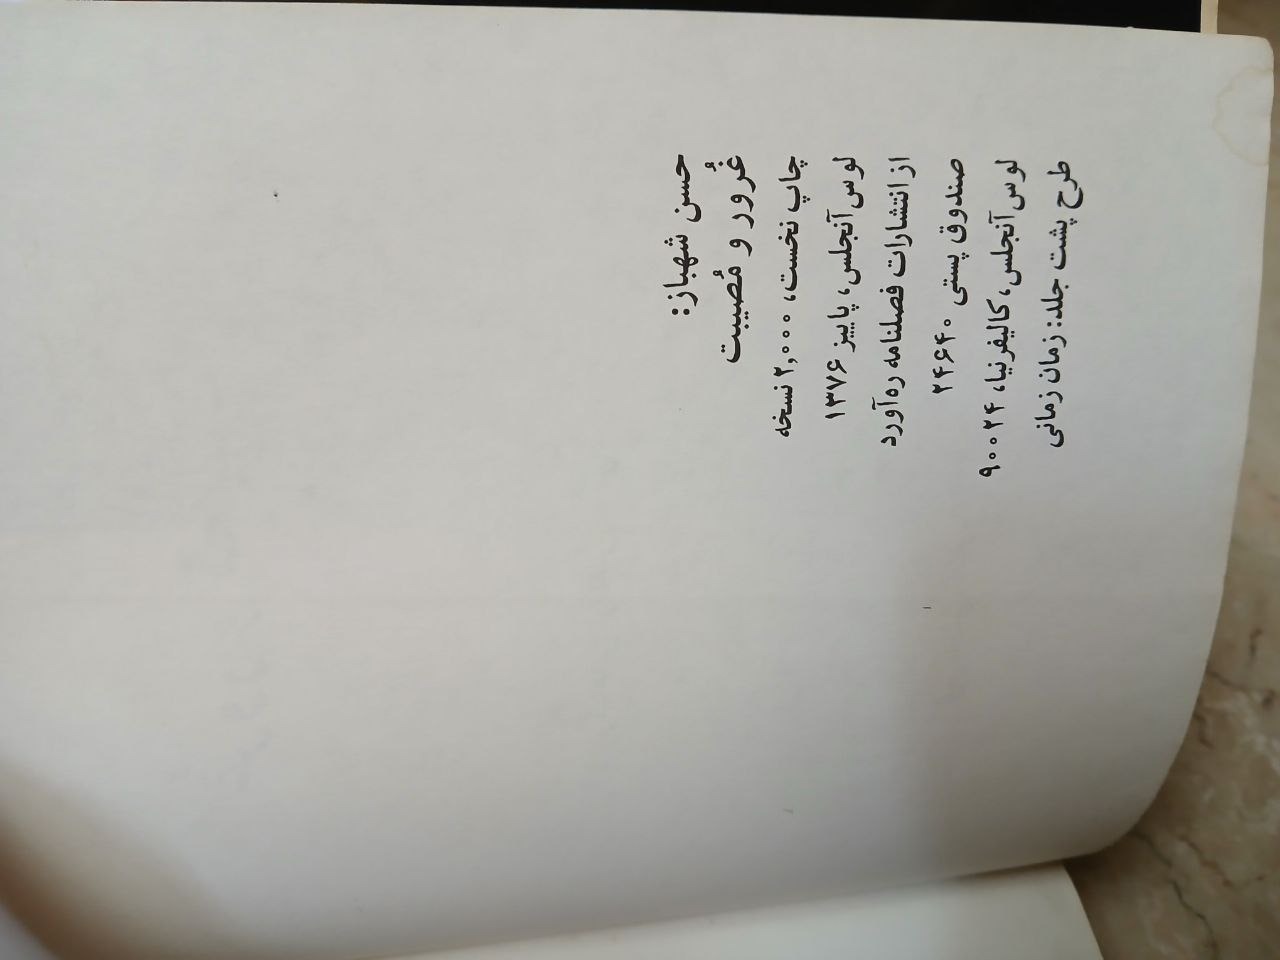 حسن شهباز:
غُرور و مُصیبت
چاپ نخست، ۲,۰۰۰ نسخه
لوس آنجلس، پاییز ۱۳۷۶
از انتشارات فصلنامه ره‌آورد
صندوق پستی ۲۴۶۴۰
لوس آنجلس، کالیفرنیا، ۹۰۰۲۴
طرح پشت جلد: زمان زمانی